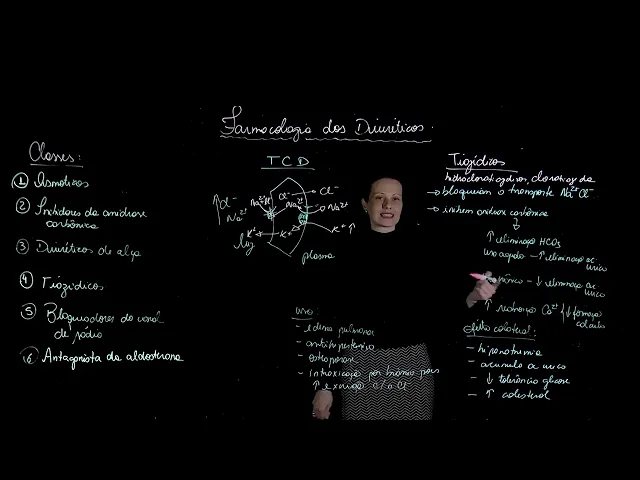 Farmacologia dos Diuréticos.
Classes:
1 Osmóticos
2 Inibidores da anidrase
carbônica
3 Diuréticos de alça
4 Tiazídicos
5 Bloqueadores do canal
de sódio
6 Antagonista da aldosterona
TCD
↑ Cl-
Na2+
Cl-
Na2+
Cl-
Na2+
K+
K+
K+ ↑
plasma
uso:
- edema pulmonar
- antihipertensivo
- osteoporose
- intoxicação por
↑ excreção
Tiazídicos
hidroclorotiazida,
→ bloqueiam o transporte Na2+ Cl-
→ inibem anidrase carbônica
↓
↑ eliminação HCO3
uso agudo - ↑ eliminação ác.
úrico
- ↓ eliminação ác.
úrico
↑ reabsorção Ca2+ ↓ formação
cálculo
efeito colateral:
- hiponatremia
- acumulo ac. urico
- ↓ tolerância glicose
- ↑ colesterol